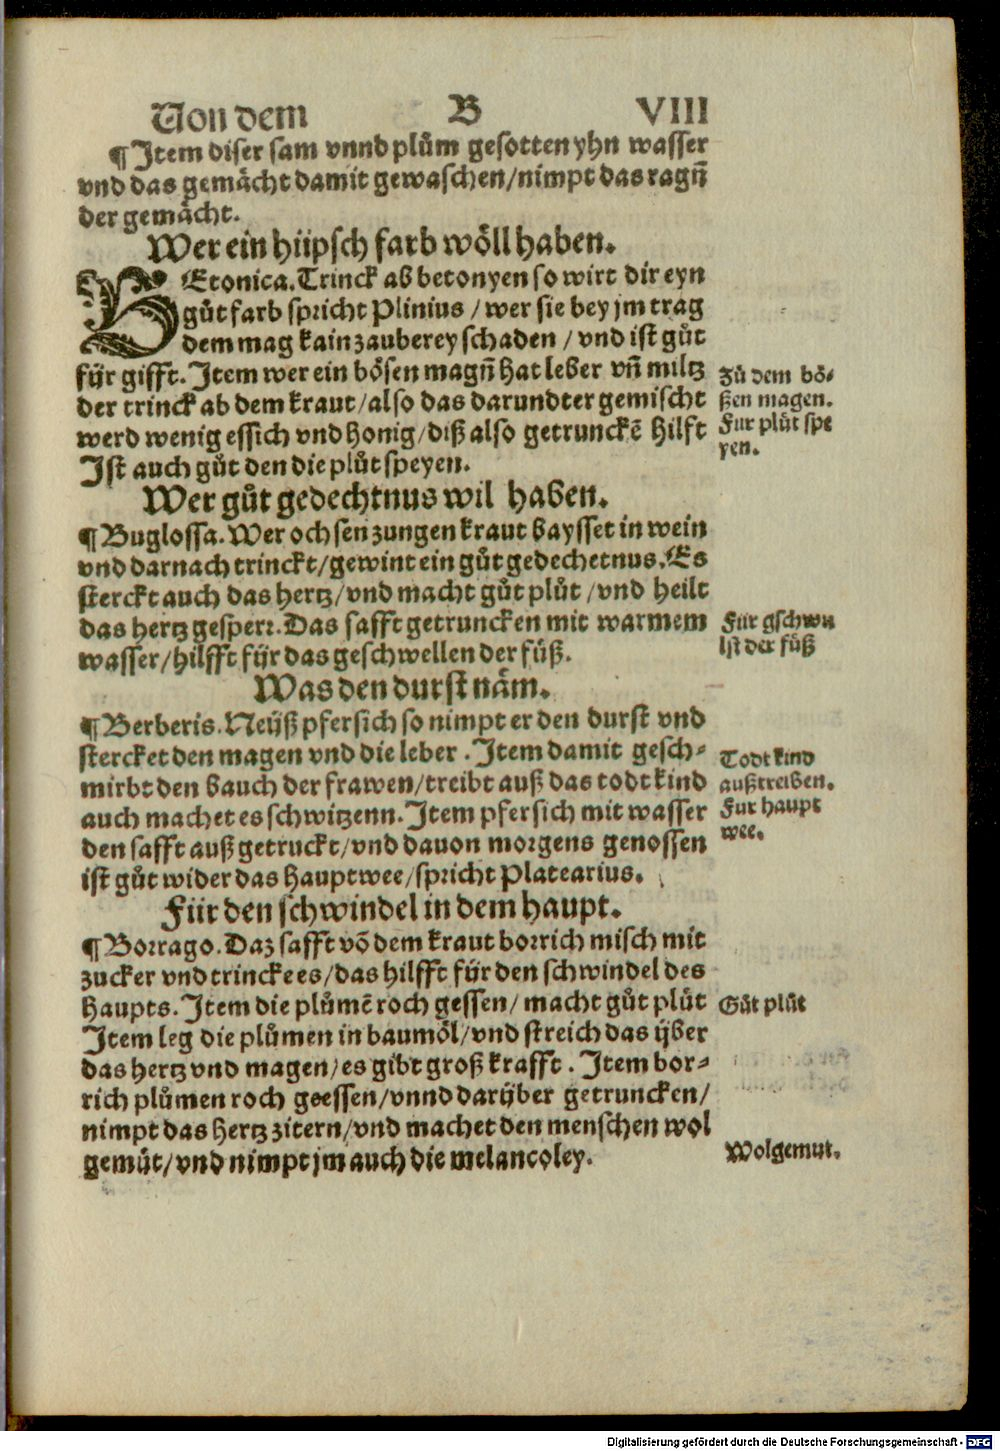 Von dem B VIII
¶ Item diser sam vnnd plům gesotten yhn wasser
vnd das gemächt damit gewaschen/nimpt das ragn̄
der gemächt.
Wer ein hüpsch farb wöll haben.
BEtonica. Trinck ab betonyen so wirt dir eyn
gůt farb spricht Plinius / wer sie bey jm trag
dem mag kain zauberey schaden / vnd ist gůt
für gifft. Item wer ein bösen magn̄ hat leber vn̄ miltz
der trinck ab dem kraut/also das darundter gemischt
werd wenig essich vnd honig/diß also getrunckē hilft
Ist auch gůt den die plůt speyen.
Zů dem bö-
ßen magen.
Fur plůt spe
yen.
Wer gůt gedechtnus wil haben.
¶ Buglossa. Wer ochsen zungen kraut baysset in wein
vnd darnach trinckt/gewint ein gůt gedechetnus. Es
sterckt auch das hertz/vnd macht gůt plůt /vnd heilt
das hertz gesperr. Das safft getruncken mit warmem
wasser/hilfft für das geschwellen der füß.
Fur gschwu
lst der füß
Was den durst näm.
¶ Berberis. Neüß pfersich so nimpt er den durst vnd
stercket den magen vnd die leber . Item damit gesch-
mirbt den bauch der frawen/treibt auß das todt kind
auch machet es schwitzenn. Item pfersich mit wasser
den safft auß getruckt/vnd dauon morgens genossen
ist gůt wider das hauptwee/spricht Platearius.
Todt kind
außtreiben.
Fur haupt
wee.
Für den schwindel in dem haupt.
¶ Borrago. Daz safft vō dem kraut borrich misch mit
zucker vnd trincke es/das hilfft für den schwindel des
haupts. Item die plůmē roch gessen/ macht gůt plůt
Item leg die plůmen in baumöl/vnd streich das über
das hertz vnd magen/es gibt groß krafft . Item bor-
rich plůmen roch geessen/vnnd darüber getruncken/
nimpt das hertz zitern/vnd machet den menschen wol
gemůt/vnd nimpt jm auch die melancoley.
Gůt plůt
Wolgemut.
Digitalisierung gefördert durch die Deutsche Forschungsgemeinschaft - DFG